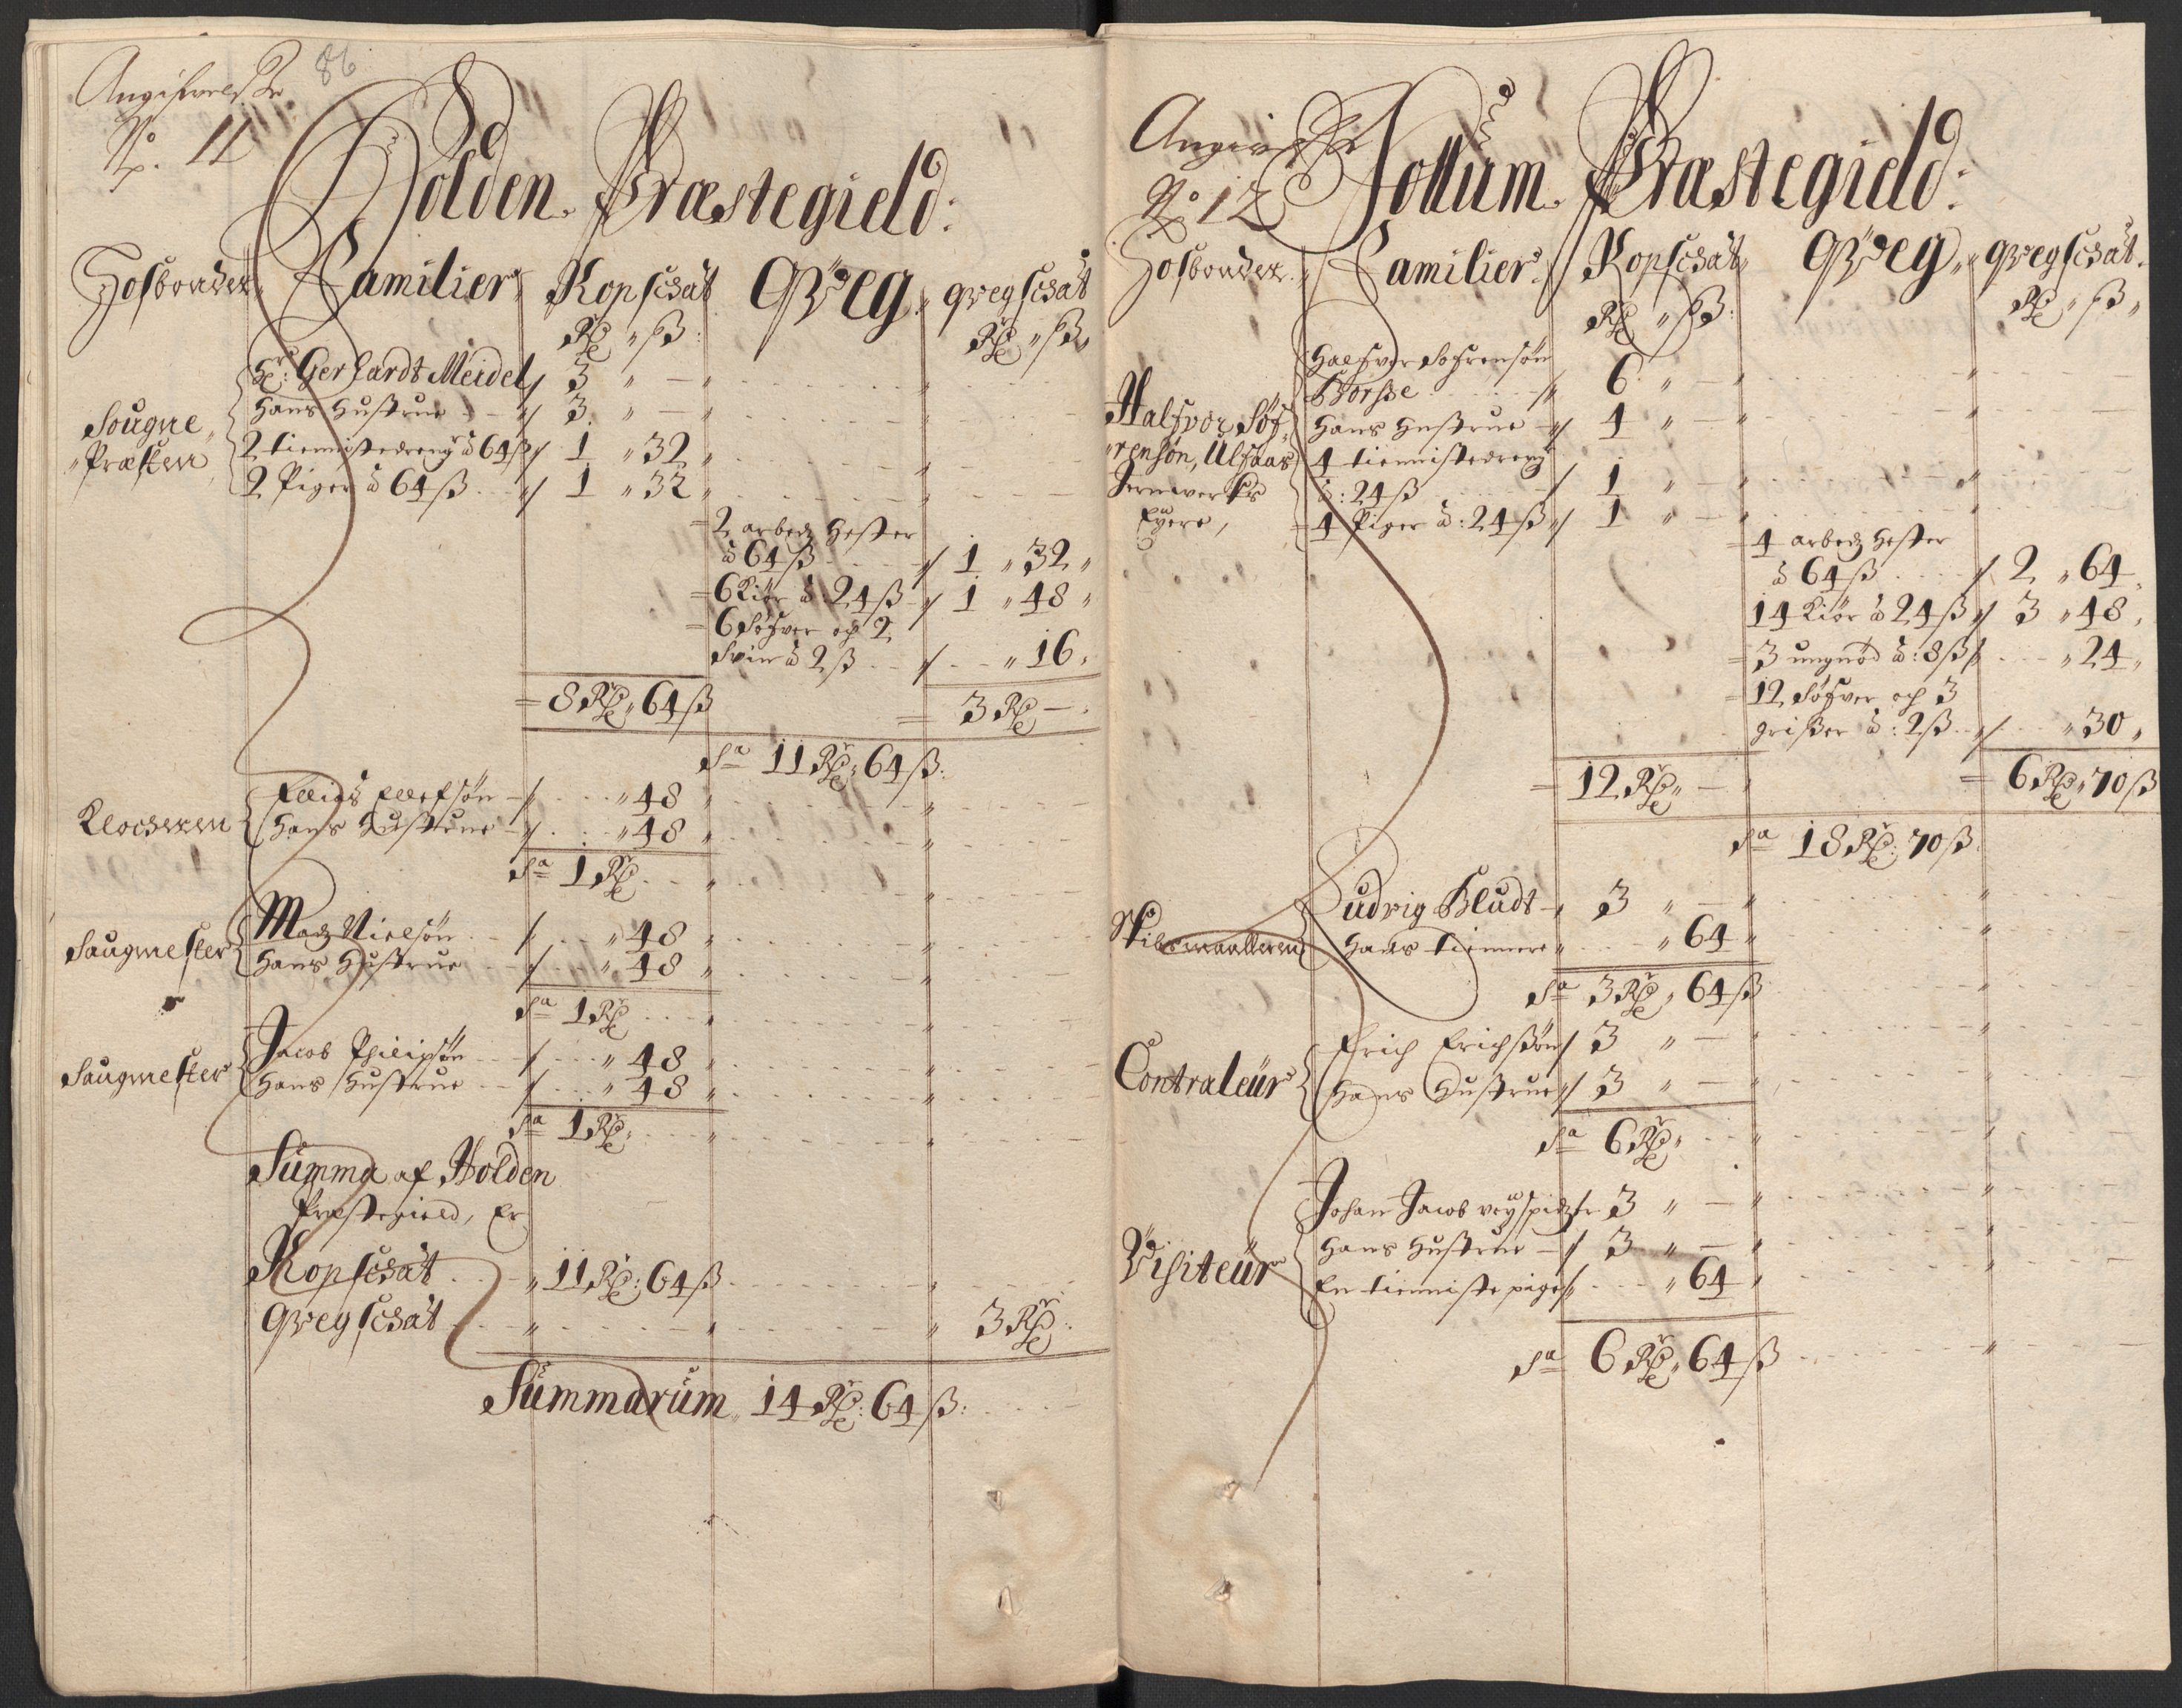 86
No. 11
Holden Præstegield:
Hosbonden Familier Kopschat Qveg qvegschat
Rdr ß Rdr ß
Hr: Gerhardt Meidel 3 " —
Hans Hustrue 3 " —
Sougne
Præsten
2 tiennistedreng à 64 ß 1 " 32
2 Piger à 64 ß 1 " 32
2 arbedz Hester
à 64 ß 1 " 32
6 Kiör à 24 ß 1 " 48
6 Söfver och 2
Svin à 2 ß " 16
8 Rdr 64 ß 3 Rdr —
Sa 11 Rdr 64 ß:
Klockeren
Ellefsön " 48
Hans Hustrue " 48
Sa 1 Rdr
Saugmester
Madz Nielsön " 48
Hans Hustrue " 48
Sa 1 Rdr
Saugmester
Jacob Philipsön " 48
Hans Hustrue " 48
Sa 1 Rdr
Summa af Holden
Præstegield, Er
Kopschat 11 Rdr: 64 ß
qvegschat 3 Rdr:
Summarum 14 Rdr: 64 ß:
No 12
Sollum Præstegield:
Hosbonden Familier Kopschat Qveg qvegschat
Rdr ß: Rdr ß
Halfvor Sofrensön
Borsse 6 " —
Halfvor Söf-
rensön, Ulfaas
Jernverks
Eyere,
Hans Hustrue 4 " —
4 tiennistedreng
à: 24 ß 1 " —
4 Piger à: 24 ß 1 " —
4 arbedz Hester
à 64 ß 2 " 64
14 Kiör à 24 ß 3 " 48
3 ungnöd à: 8 ß " 24
12 Söfver och 3
grisser à: 2 ß " 30
12 Rdr — 6 Rdr 70 ß
Sa 18 Rdr: 70 ß
Ludvig Bludt 3 " —
Hans tiennere " 64
Sa 3 Rdr 64 ß
Contraleür
Erich Erichsön 3 " —
Hans Hustrue 3 " —
Sa 6 Rdr
Visiteür
Johan Jacob 3 " —
Hans Hustrue 3 " —
En tienniste pige " 64
Sa 6 Rdr 64 ß